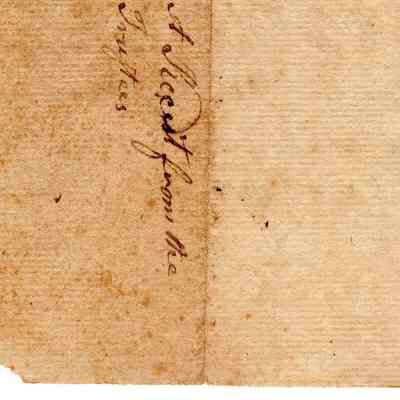 A Receipt from the
Trustees